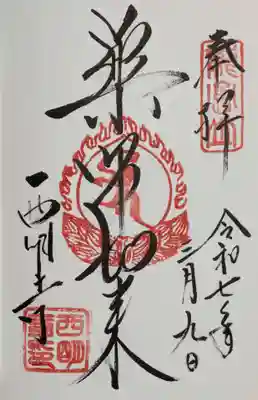 奉拝
令和七年
二月九日
薬師如来
西明寺